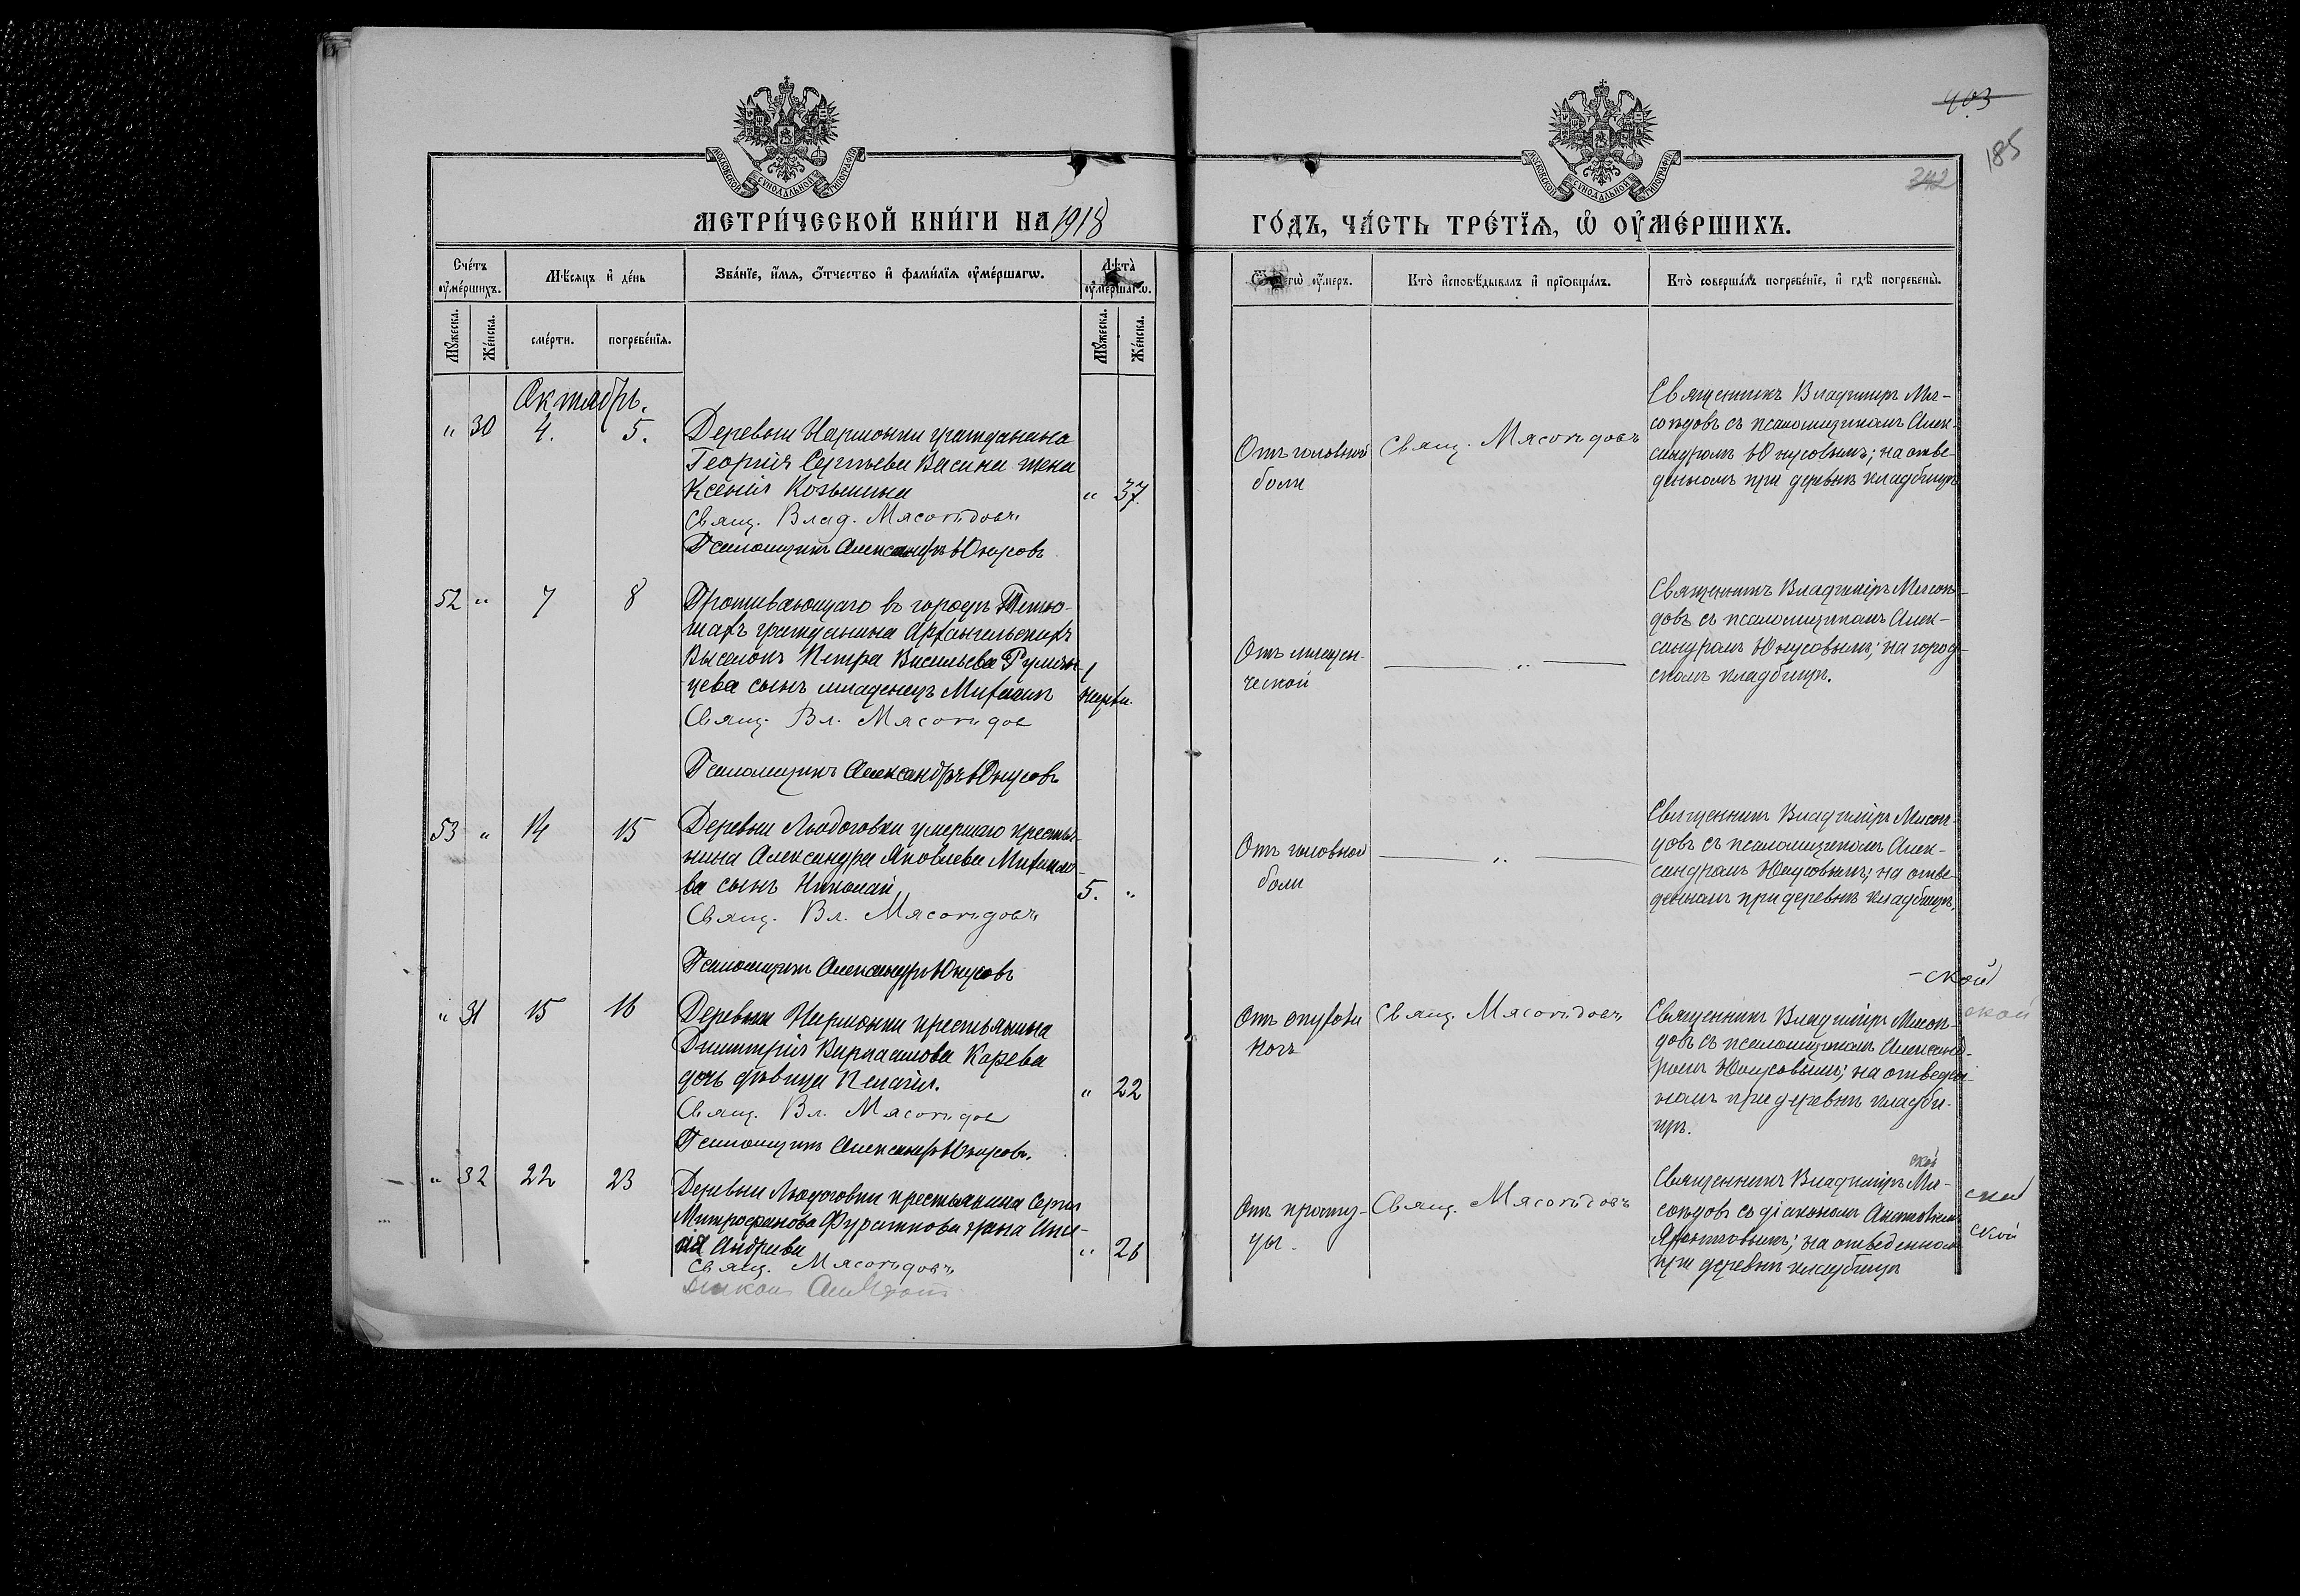 403
185
342
МОСКОВСКОЙ СѴНОДАЛЬНОЙ ТИПОГРАФІИ
МОСКОВСКОЙ СѴНОДАЛЬНОЙ ТИПОГРАФІИ
МЕТРИ́ЧЕСКОЙ КНИ́ГИ НА 1918
ГО́ДЪ, ЧА́СТЬ ТРЕ́ТЇѦ, Ѡ҆ ОУ҆МЕ́РШИХЪ.
Сче́тъ оу҆ме́ршихъ.
Мѣ́сѧцъ и҆ де́нь
Зва́нїе, и҆́мѧ, ѻ҆́тчество и҆ фами́лїѧ оу҆ме́ршагѡ.
Лѣ́та оу҆ме́ршагѡ.
Ѿ чегѡ̀ оу҆́меръ.
Кто̀ и҆сповѣ́дывалъ и҆ прїѡбща́лъ.
Кто̀ соверша́лъ погребе́нїе, и҆ гдѣ̀ погребены̀.
Мꙋ́жеска.
Же́нска.
сме́рти.
погребе́нїѧ.
Мꙋ́жеска.
Же́нска.
Октябрь.
" 30 4. 5.
Деревни Нармонки гражданина
Георгія Сергѣева Васина жена
Ксенія Козьмина
" 37
Свящ. Влад. Мясоѣдовъ
Псаломщикъ Александръ Юнусовъ
Отъ головной
боли
Свящ. Мясоѣдовъ
Священникъ Владиміръ Мя-
соѣдовъ съ псаломщикомъ Алек-
сандромъ Юнусовымъ; на отве-
денномъ при деревнѣ кладбищѣ
52 " 7 8
Проживающаго въ городѣ Тетю-
шахъ гражданина Архангельскихъ
Выселокъ Петра Васильева Румян-
цева сынъ младенецъ Михаилъ
1
Свящ. Вл. Мясоѣдов
Псаломщикъ Александръ Юнусовъ
Отъ младен-
ческой
— " —
Священникъ Владиміръ Мясоѣ-
довъ съ псаломщикомъ Алек-
сандромъ Юнусовымъ; на город-
скомъ кладбищѣ.
53 " 14 15
Деревни Людоговки умершаго крестья-
нина Александра Яковлева Михайло-
ва сынъ Николай
5. "
Свящ. Вл. Мясоѣдовъ
Псаломщикъ Александръ Юнусовъ
Отъ головной
боли
— " —
Священникъ Владиміръ Мясоѣ-
довъ съ псаломщикомъ Алек-
сандромъ Юнусовымъ; на отве-
денномъ при деревнѣ кладбищѣ.
-ской
" 31 15 16
Деревни Нармонки крестьянина
Димитрія Карева
дочь дѣвица Пелагія.
" 22
Свящ. Вл. Мясоѣдов
Псаломщикъ Александръ Юнусовъ.
Отъ опухоли
ногъ
Свящ. Мясоѣдовъ
Священникъ Владиміръ Мясоѣ-
довъ съ псаломщикомъ Александ-
ромъ Юнусовымъ; на отведен-
номъ при деревнѣ кладби-
щѣ.
ской
" 32 22 23
Деревни Людоговки крестьянина Сергія
Митрофанова жена
Андреева
" 26
Свящ. Мясоѣдовъ
Діаконъ
Отъ просту-
ды.
Свящ. Мясоѣдовъ
ской
Священникъ Владиміръ Мя-
соѣдовъ съ діакономъ
на отведенномъ
при деревнѣ кладбищѣ
ской
ской